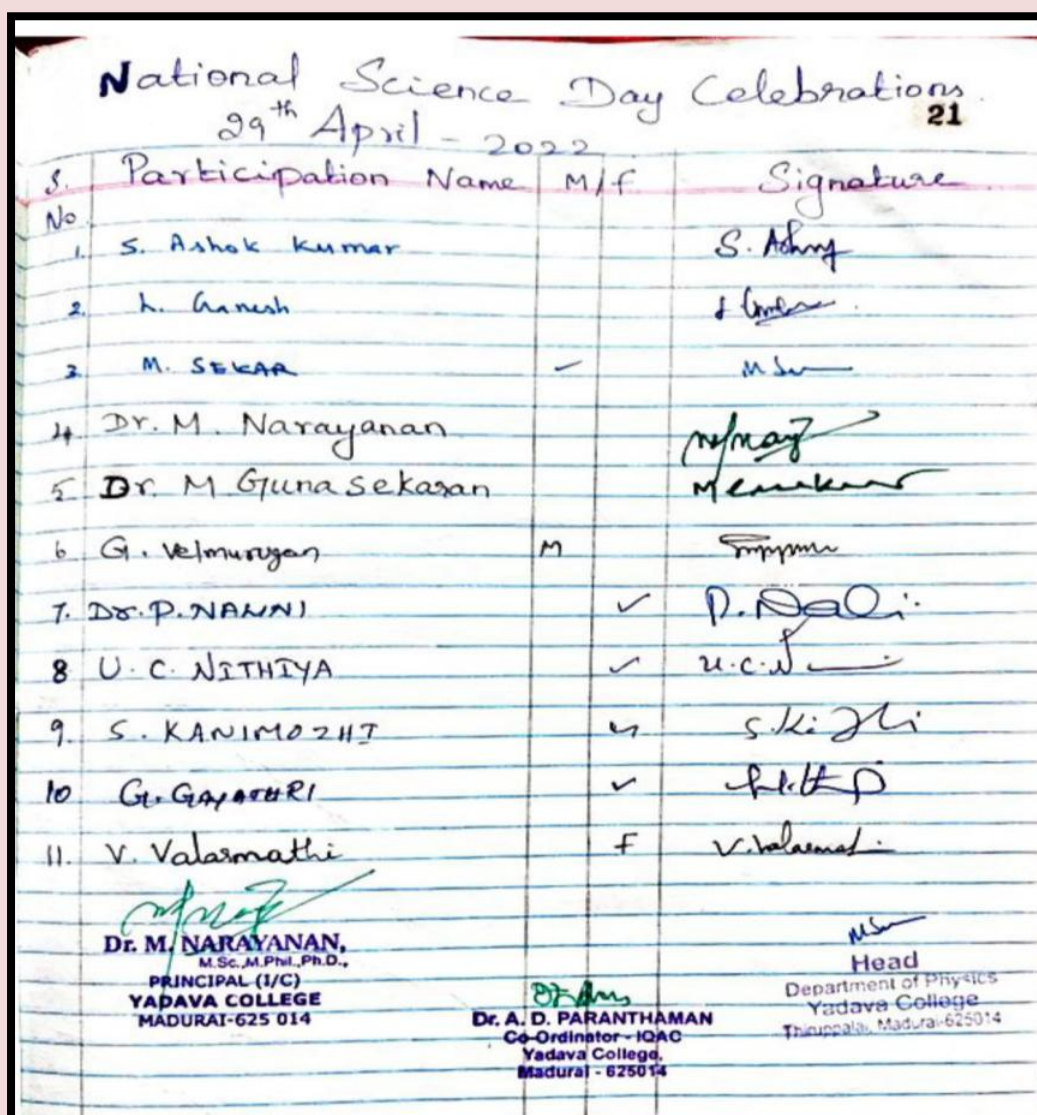 National Science Day Celebrations
21
29th April - 2022
S. No. Participation Name M/F Signature
1. S. Ashok Kumar S. Ashny
2. L. Ganesh
3. M. SEKAR -
4 Dr. M. Narayanan
5 Dr. M Gunasekaran
6 G. Velmurugan M
7. Dr. P. NANNI ✓
8 U. C. NITHIYA ✓ U.C.N
9. S. KANIMOZHI ✓
10 G. GAYATHRI ✓
11. V. Valarmathi F V. Valarmathi
Dr. M. NARAYANAN,
M.Sc.,M.Phil.,Ph.D.,
PRINCIPAL (I/C)
YADAVA COLLEGE
MADURAI-625 014
Dr. A. D. PARANTHAMAN
Co-Ordinator - IQAC
Yadava College,
Madurai - 625014
Head
Department of Physics
Yadava College
Thiruppalai, Madurai-625014